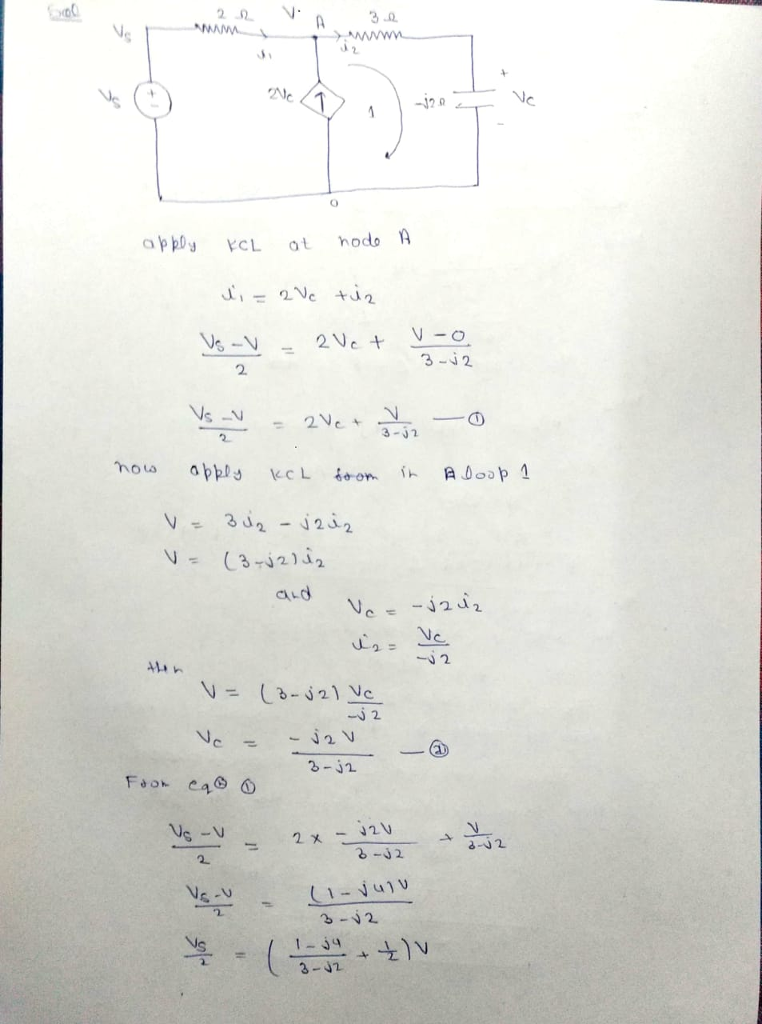 Sol
2 Ω V. A 3 Ω
Vs i1 i2
Vs + - 2Vc ↑ 1 -j2Ω + Vc -
0
apply KCL at node A
i1 = 2Vc + i2
(Vs - V)/2 = 2Vc + (V - 0)/(3 - j2)
(Vs - V)/2 = 2Vc + V/(3 - j2) — ①
now apply KCL in loop 1
V = 3i2 - j2i2
V = (3 - j2) i2
and
Vc = -j2i2
i2 = Vc/(-j2)
then
V = (3 - j2) Vc/(-j2)
Vc = -j2V/(3 - j2) — ②
From eq ①
(Vs - V)/2 = 2 × -j2V/(3 - j2) + V/(3 - j2)
(Vs - V)/2 = (1 - j4)V/(3 - j2)
Vs/2 = ((1 - j4)/(3 - j2) + 1/2) V